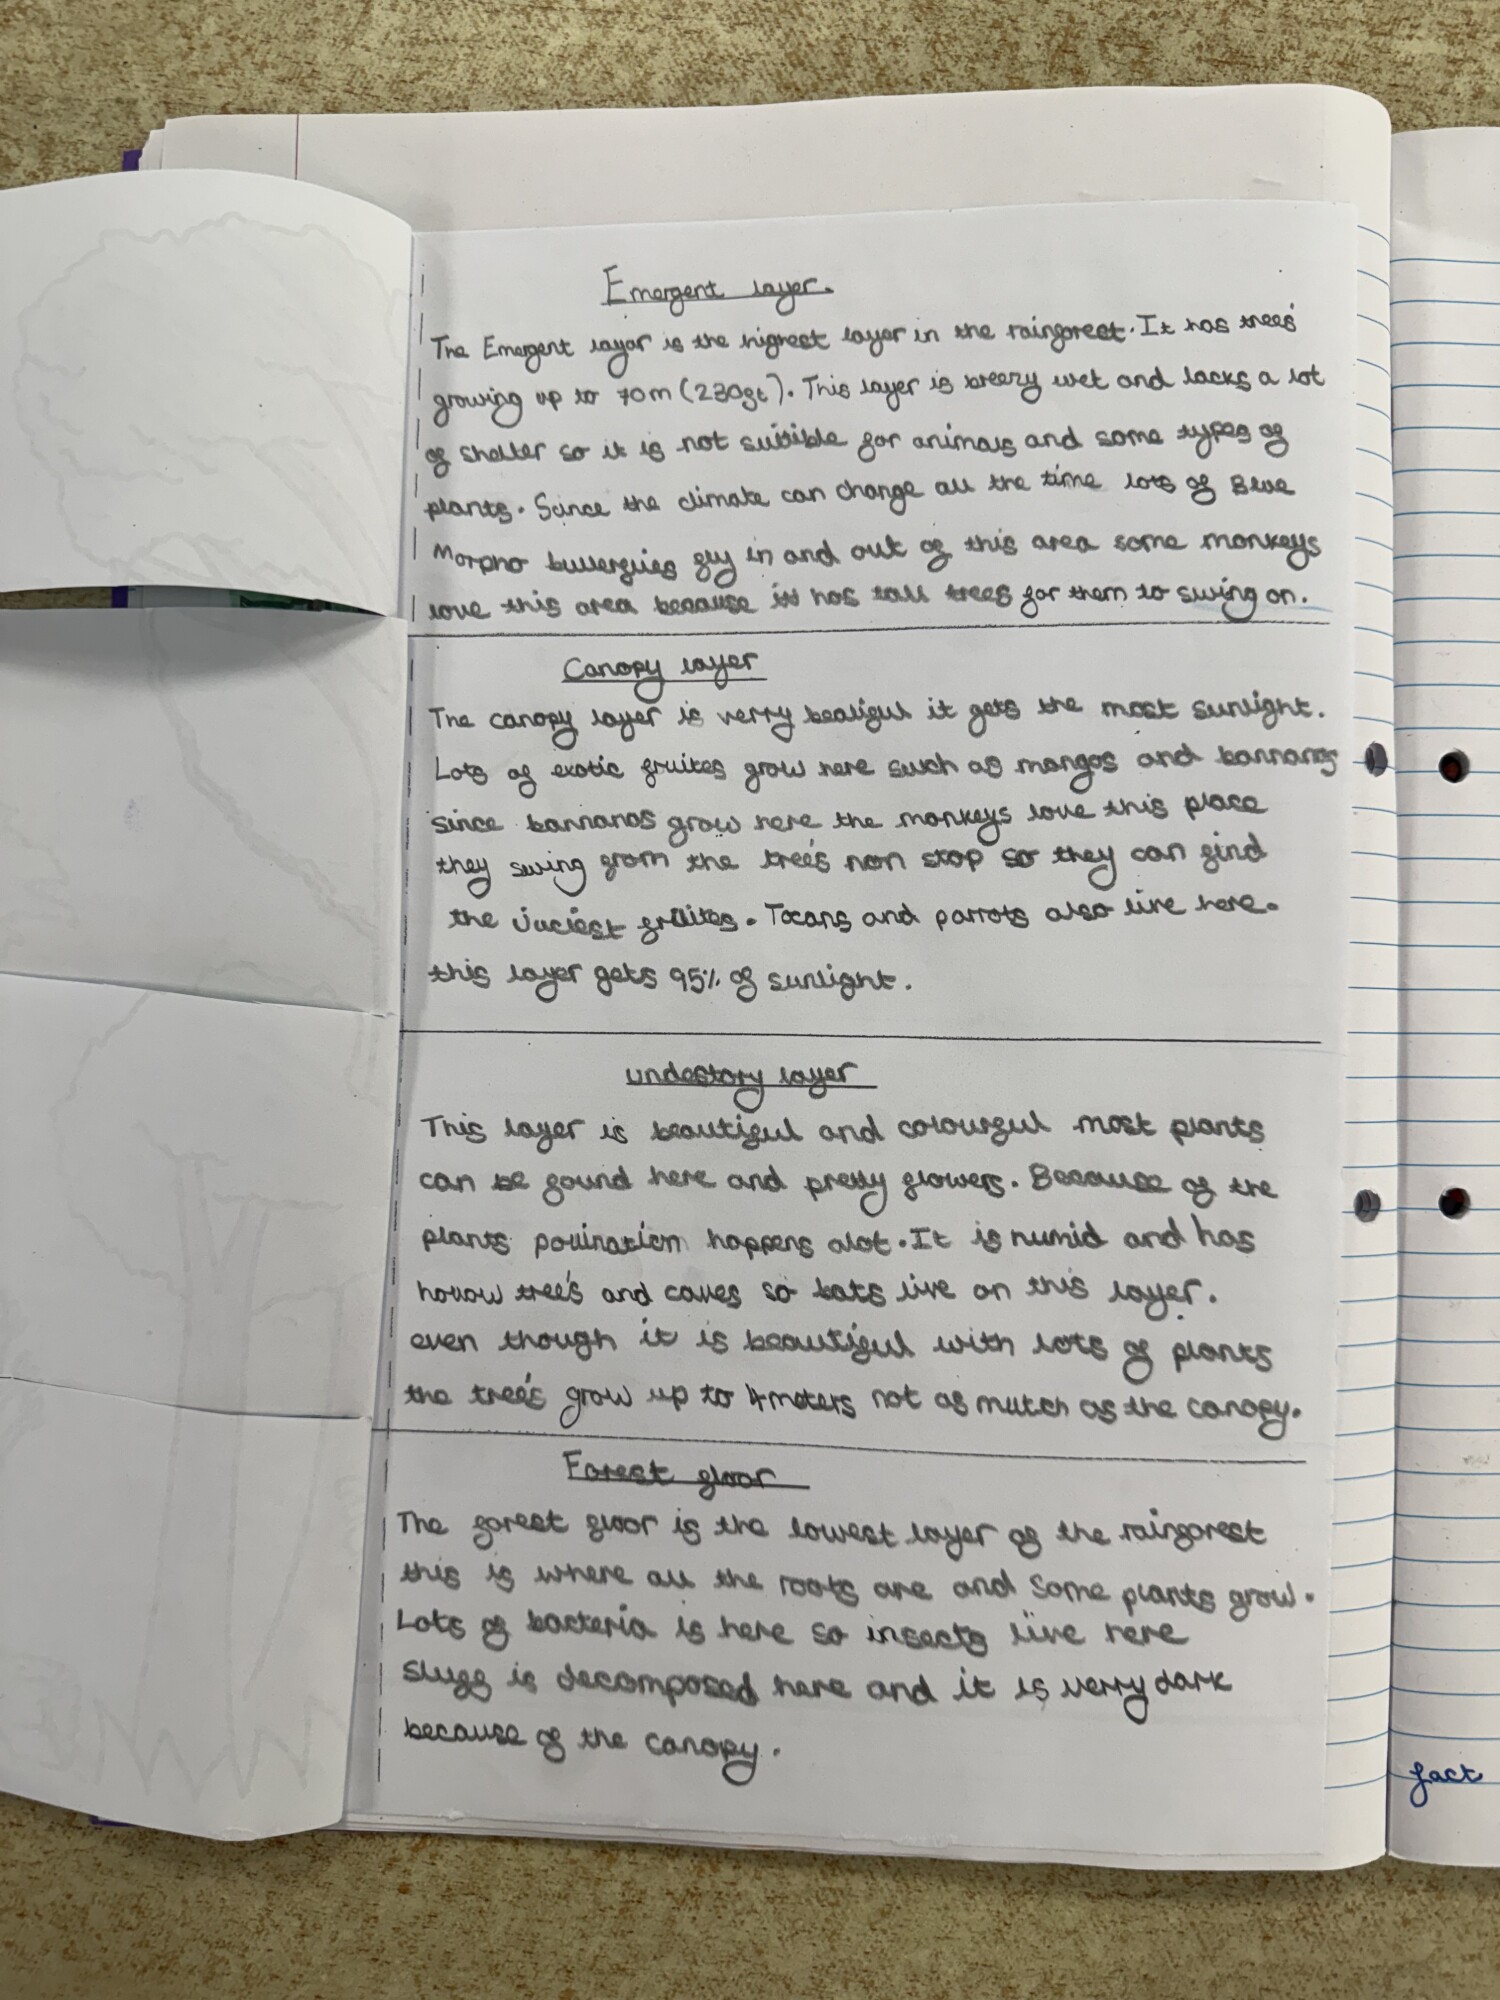 Emergent layer.
The Emergent layar is the highest layer in the rainforest. It has trees
growing up to 70m (230ft). This layer is breezy wet and lacks a lot
of shelter so it is not suitible for animals and some types of
plants. Since the climate can change all the time lots of Blue
Morpho buuerflies fly in and out of this area some monkeys
love this area because it has tall trees for them to swing on.
Canopy layer
The canopy layer is verry beatiful it gets the most sunlight.
Lots of exotic fruites grow here such as mangos and bannanas
since bannanas grow here the monkeys love this place
they swing from the trees non stop so they can find
the juciest fruites. Tocans and parrots also live here.
this layer gets 95% of sunlight.
undestory layer
This layer is beautiful and colourful most plants
can be found here and pretty flowers. Because of the
plants pollination happens alot. It is humid and has
hollow trees and caves so bats live on this layer.
even though it is beautiful with lots of plants
the trees grow up to 4meters not as mutch as the canopy.
Forest floor
The forest floor is the lowest layer of the rainforest
this is where all the roots are and some plants grow.
Lots of bacteria is here so insects live here
Stuff is decomposed here and it is verry dark
because of the canopy.
fact